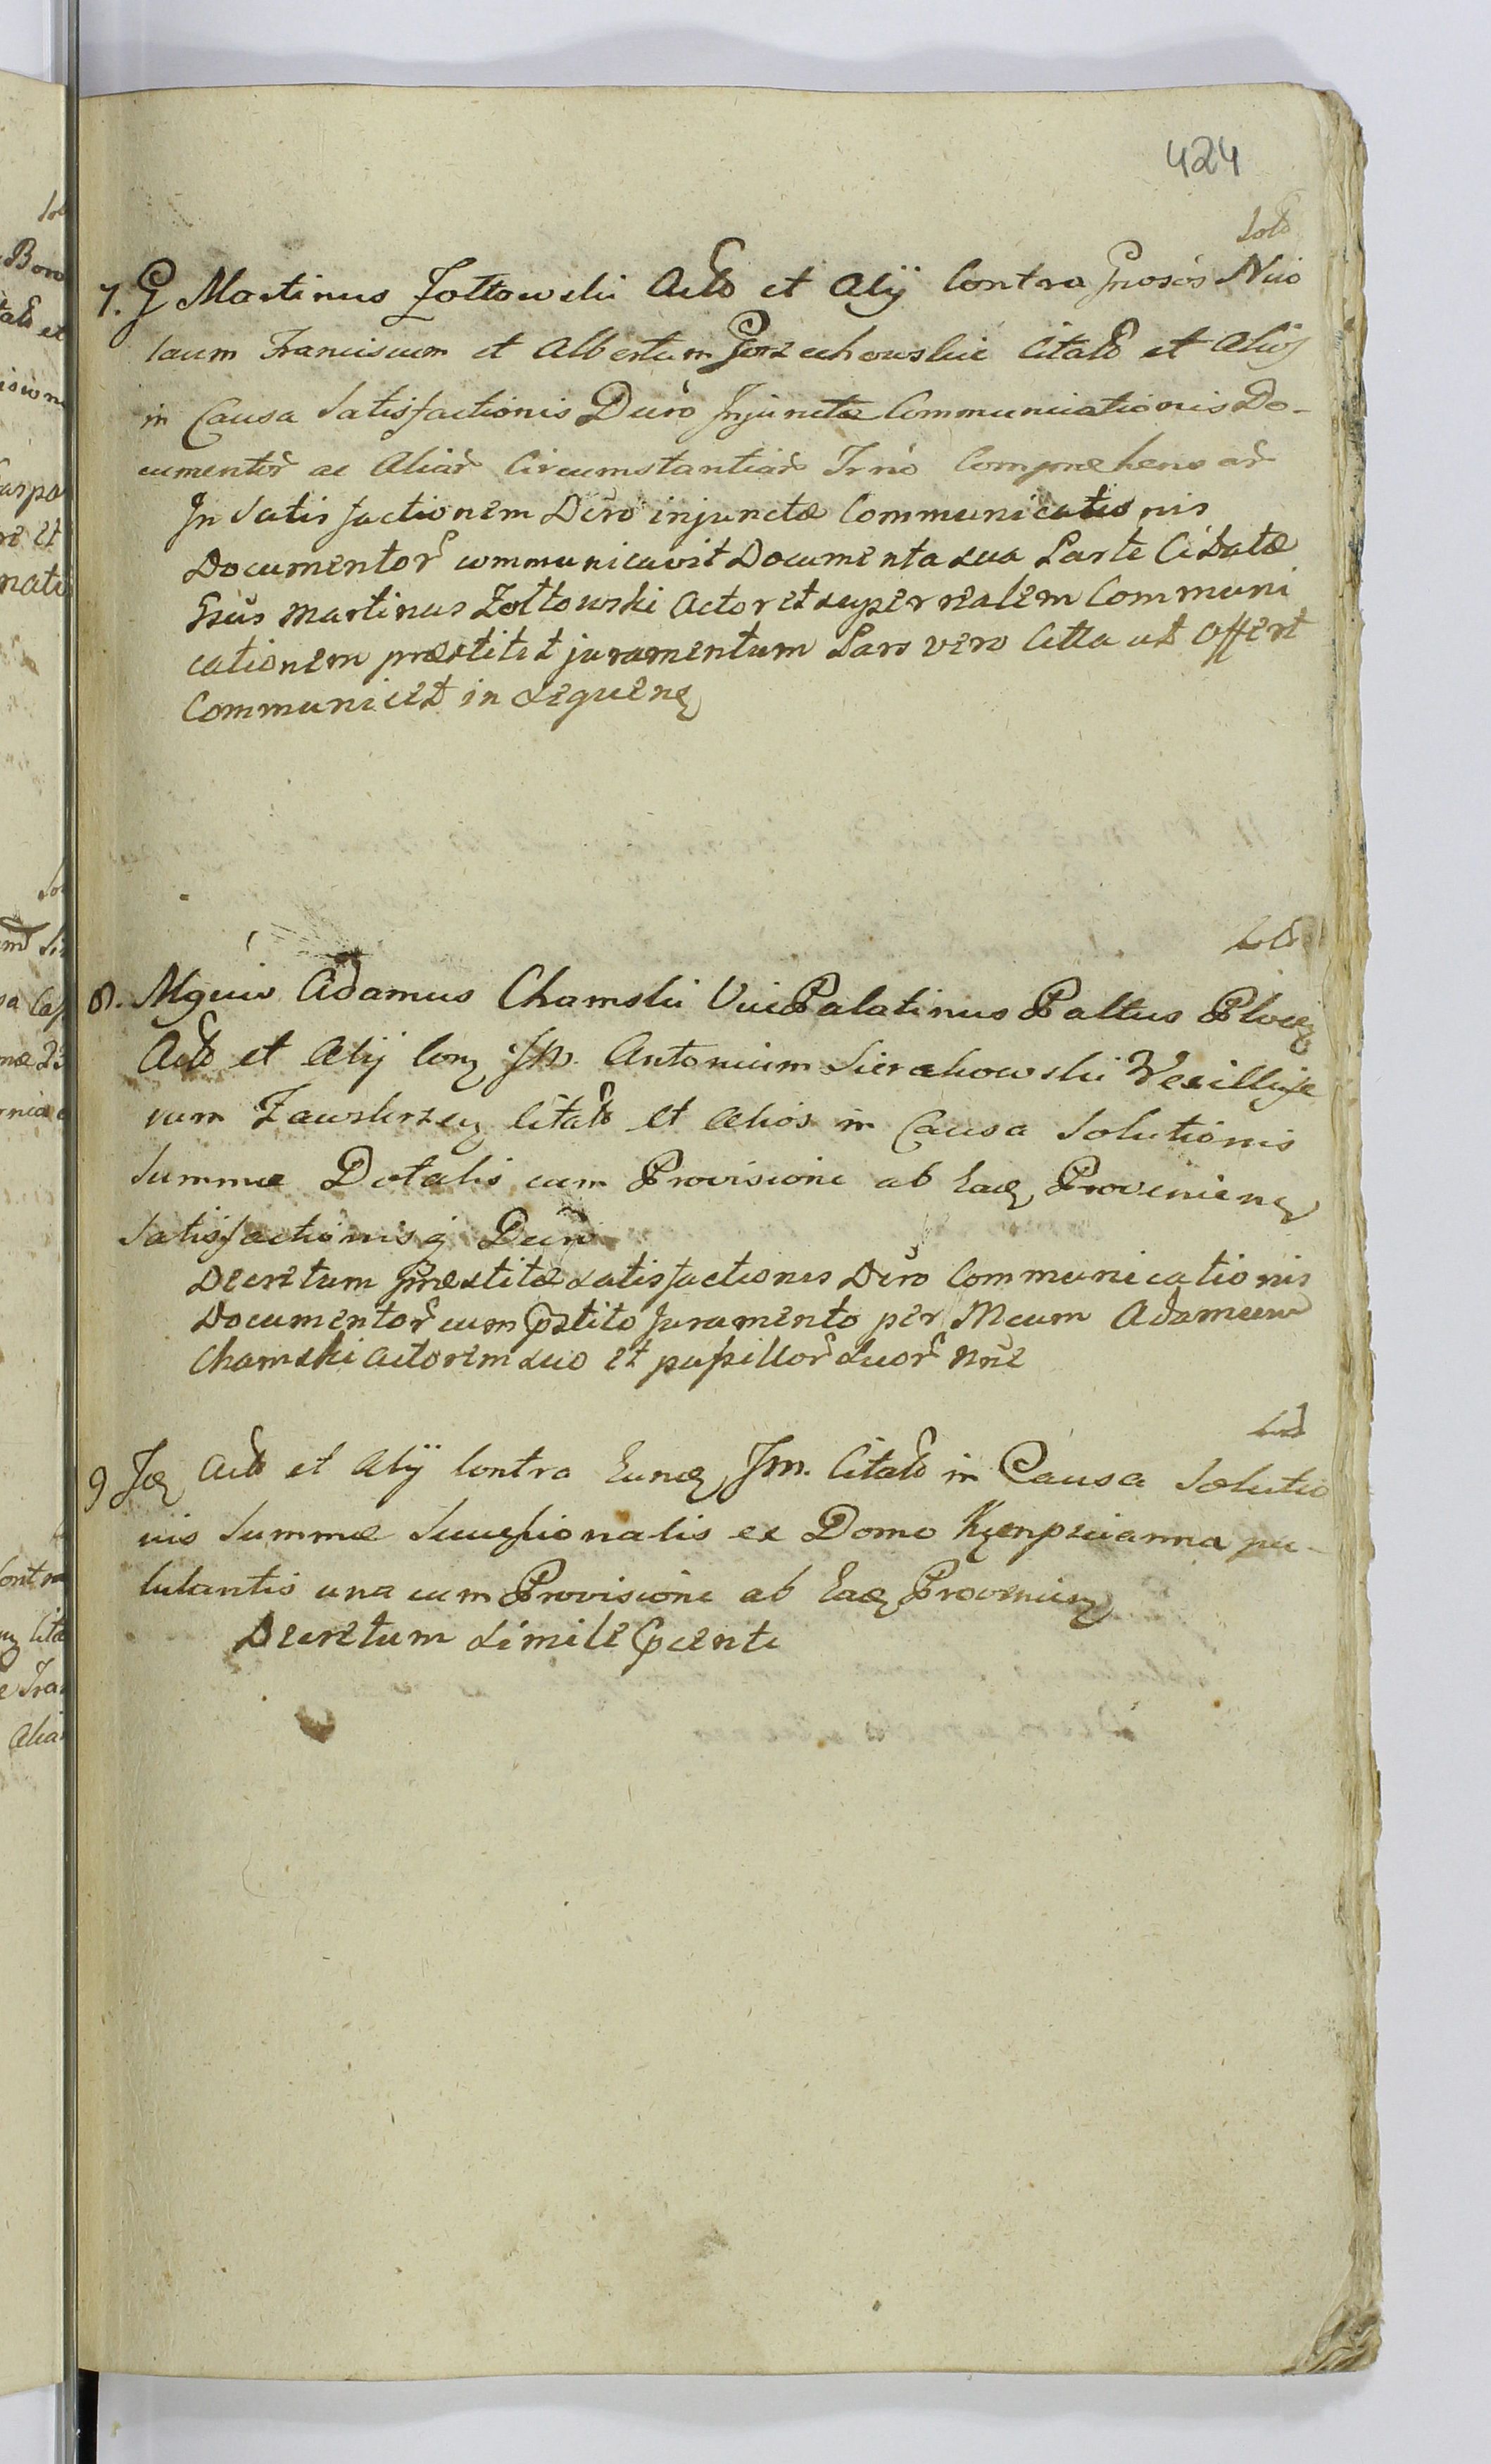 424
Sol&
7. G Martinus Zołtowski Act& et Alij Contra Gnosos Nico
laum Franciscum et Albertum Gorzechowskie Citat& et Alios
in Causa Satisfactionis Decro Injunctæ Communicationis Do-
cumentor ac Aliar Circumstantiar Trno Comprehensar
In Satisfactionem Decro injunctæ Communicationis
Documentor communicavit Documenta sua Parte Citatæ
Gsus Martinus Zołtowski Actor et super realem Communi
cationem præstitit juramentum Pars vero Citta ut offert
Communicet in sequen
8. Mgcus Adamus Chamski Vice Palatinus Paltus Plocen
Act& et Alij Con Jm. Antonium Sierakowski Vexillife
rum Zawskrzen Citat& et Alios in Causa Solutionis
Summæ Dotalis cum Provisione ab Ead Provenien
Satisfactionisq Decro
Decretum præstitæ satisfactionis Decro Communicationis
Documentor cum pstito Juramento per Mcum Adamum
Chamski actorem suo et pupillor suor nne
9 Id Act& et Alij Contra Eund Jm. Citat& in Causa Solutio
nis Summæ Successionalis ex Domo Kempscianna pu-
lulantis una cum Provisione ab Ead Provenien
Decretum simile pcenti